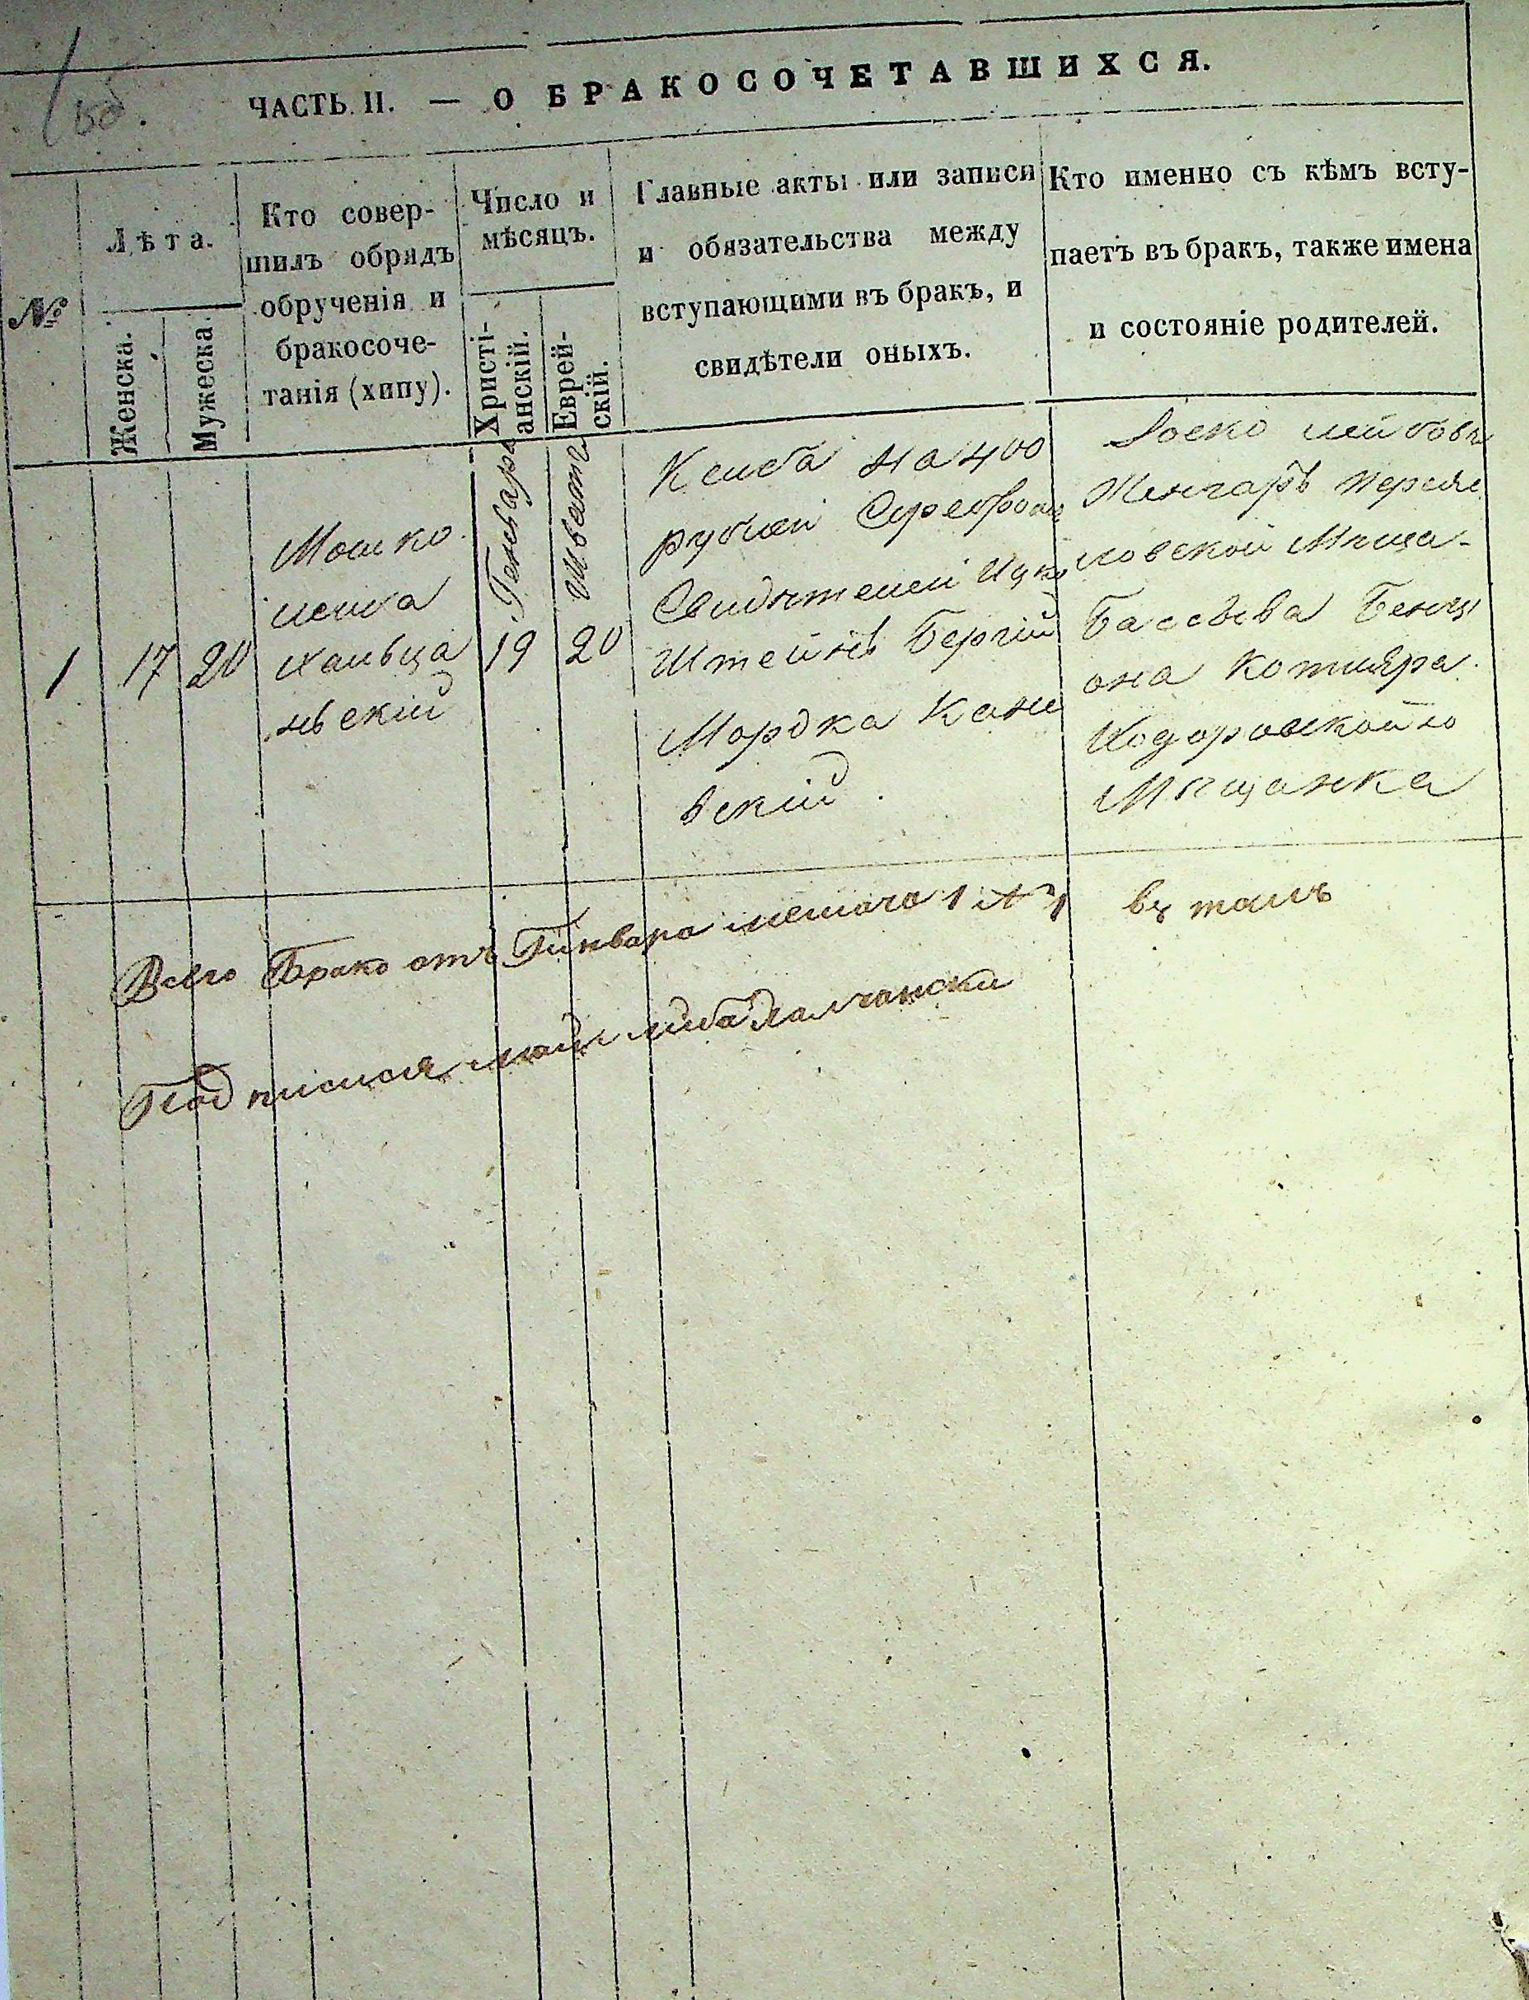 1 об.
ЧАСТЬ II. — О БРАКОСОЧЕТАВШИХСЯ.
№
Лѣта.
Женска.
Мужеска.
Кто совер-
шилъ обрядъ
обрученія и
бракосоче-
танія (хипу).
Число и
мѣсяцъ.
Христі-
анскій.
Еврей-
скій.
Главные акты или записи
и обязательства между
вступающими въ бракъ, и
свидѣтели оныхъ.
Кто именно съ кѣмъ всту-
паетъ въ бракъ, также имена
и состояніе родителей.
1
17
20
Мошко
хальца
ньскій
Генваря
19
Шватъ
20
Ксиба на 400
рублей Серебромъ
Свидѣтелей Ицко
Штейнъ Бергій
Мордка Кане
вскій.
Лейбовъ
Женгаръ Переяс
ловской Мѣща-
Бассева Бенци
она Котляра
Ходоровской
Мѣщанка
Всего Брако отъ Генваря 1
Подписися